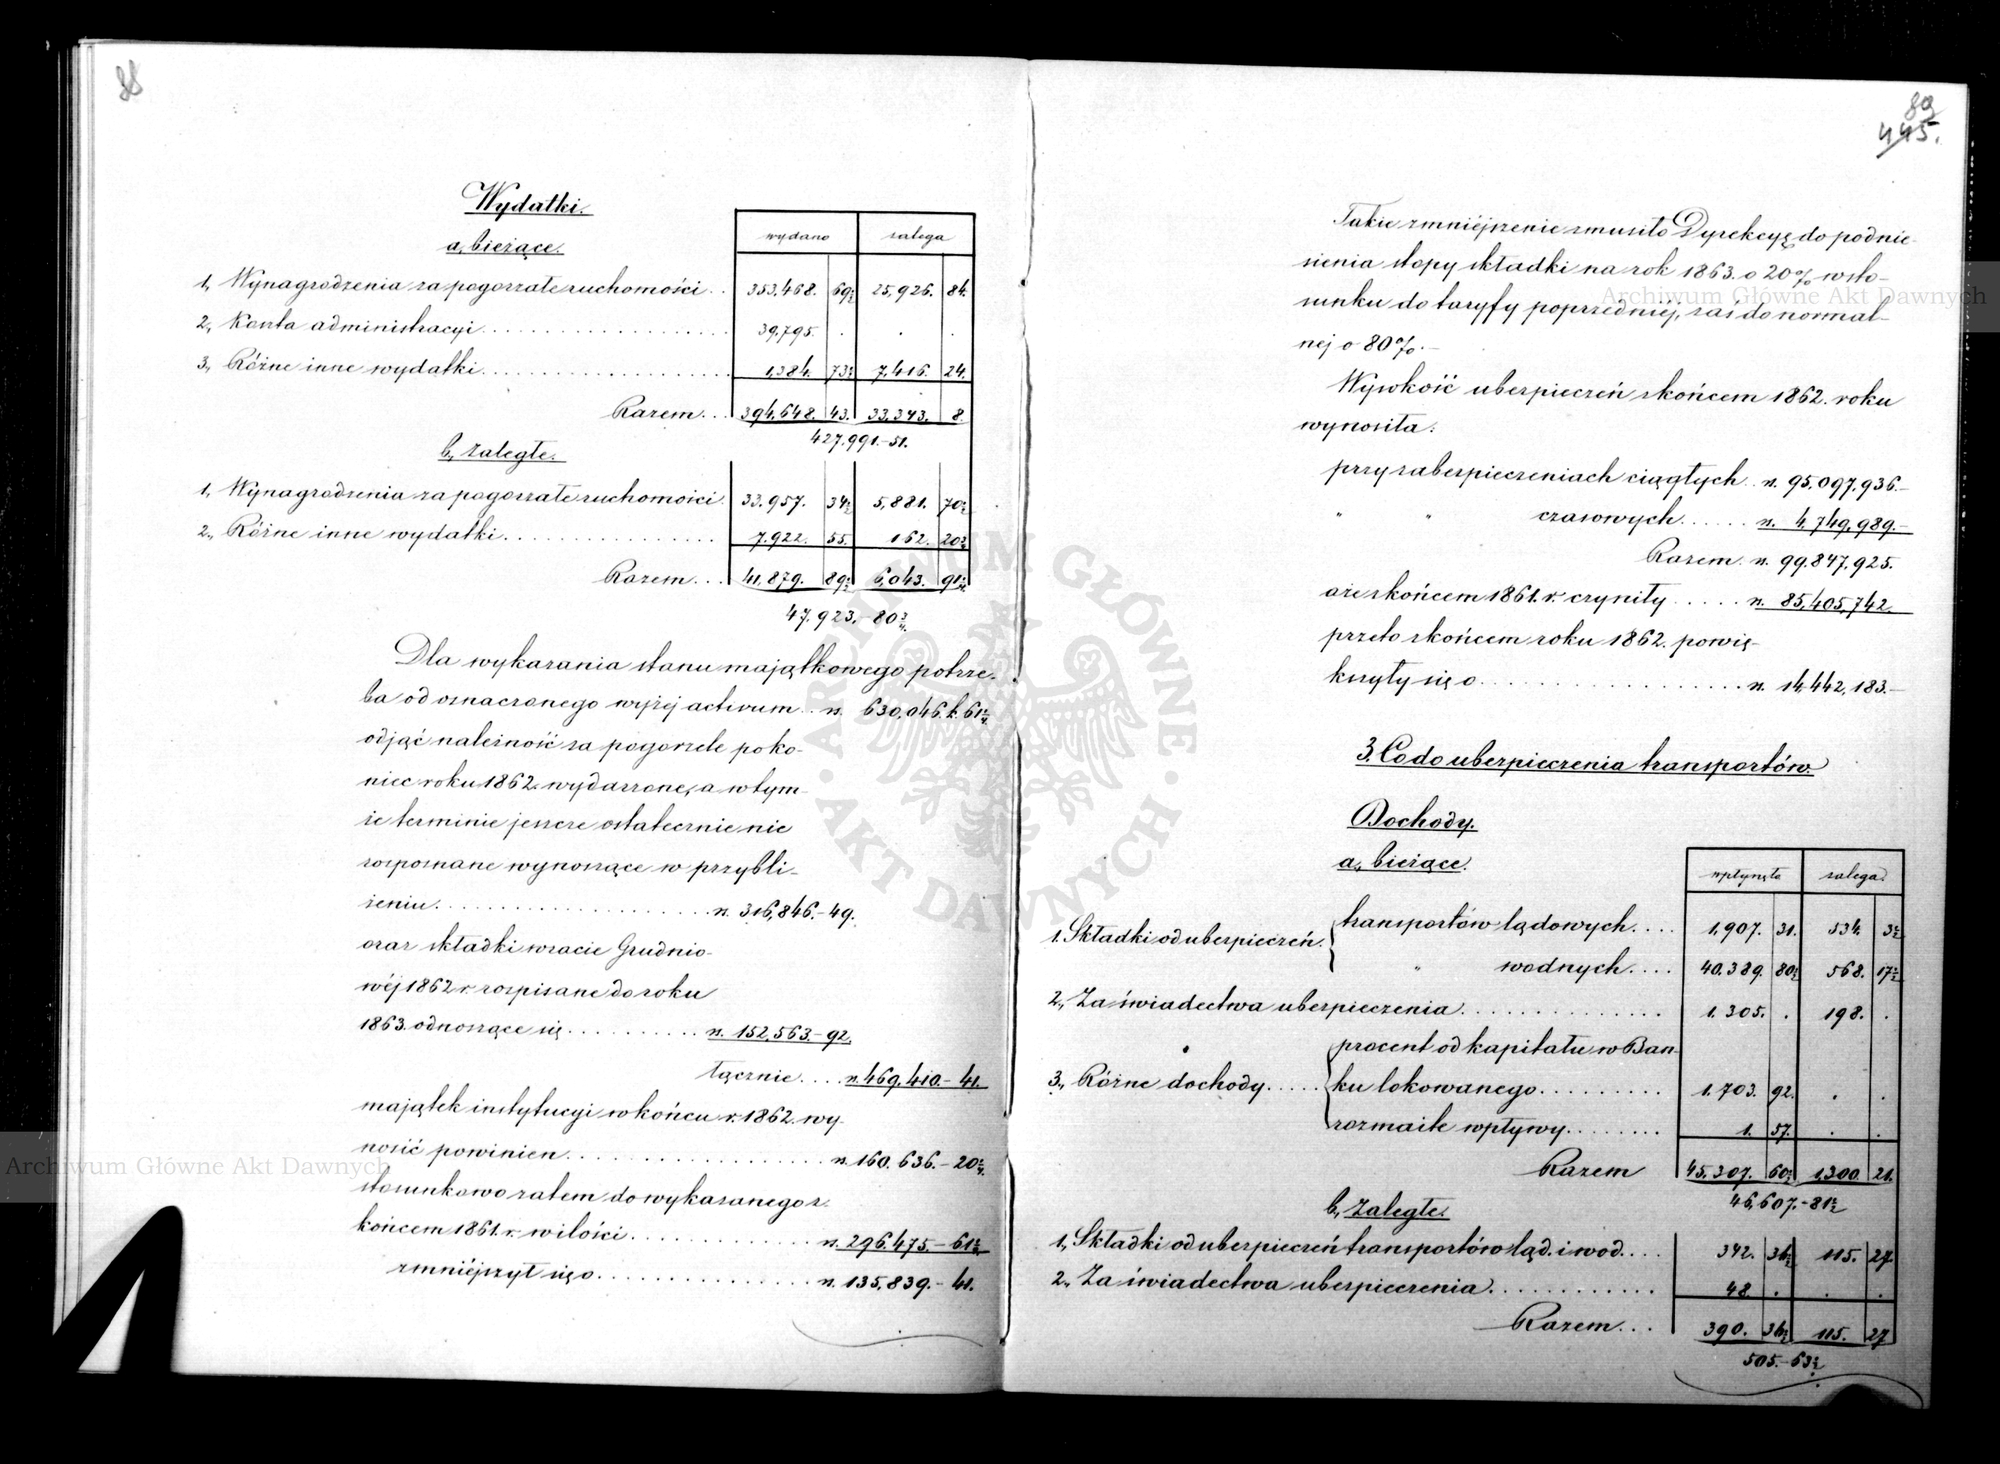 88
Wydatki.
a, bieżące.
wydano zalega
1, Wynagrodzenia za pogorzałe ruchomości . . 353,468. 69½ 25,926. 84.
2, Koszta administracyi . . . 39,795. . . .
3, Różne inne wydatki . . . 1,384. 73½ 7,416. 24.
Razem . . . 394,648. 43. 33,343. 8.
427,991.-51.
b, zaległe.
1, Wynagrodzenia za pogorzałe ruchomości 33,957. 34½ 5,881. 70¾
2, Różne inne wydatki . . . 7,922. 55. 162. 20¾
Razem . . . 41,879. 89½ 6,043. 91¼
47,923.-80¾
Dla wykazania stanu majątkowego potrze-
ba od oznaczonego wyżej activum . . rs. 630,046. k. 61¼
odjąć należność za pogorzele po ko-
niec roku 1862. wydarzone, a w tym-
że terminie jeszcze ostatecznie nie
rozpoznane wynoszące w przybli-
żeniu . . . rs. 316,846.-49.
oraz składki w racie Grudnio-
wéj 1862 r. rozpisane do roku
1863. odnoszące się . . . rs. 152,563.-92.
łącznie . . . rs. 469,410.-41.
majątek instytucyi w końcu r. 1862. wy-
nosić powinien . . . rs. 160,636.-20¼
stosunkowo zatem do wykazanego z
końcem 1861. r. w ilości . . . rs. 296,475.-61¼
zmniéjszył się o . . . rs. 135,839.-41.
89
445.
Takie zmniéjszenie zmusiło Dyrekcyę do podnie-
sienia stopy składki na rok 1863. o 20% w sto-
sunku do taryfy poprzedniéj, zaś do normal-
nej o 80%.-
Wysokość ubezpieczeń z końcem 1862. roku
wynosiła:
przy zabezpieczeniach ciągłych . . rs. 95,097,936.-
" " czasowych . . . rs. 4,749,989.-
Razem rs. 99,847,925.
a że z końcem 1861. r. czyniły . . . rs. 85,405,742.
przeto z końcem roku 1862. powię-
kszyły się o . . . rs. 14,442,183.-
3. Co do ubezpieczenia transportów.
Dochody.
a, bieżące.
wpłynęło zalega.
1. Składki od ubezpieczeń transportów lądowych . . . 1,907. 31. 534. 3½
" wodnych . . . 40,389. 80½ 568. 17½
2, Za świadectwa ubezpieczenia . . . 1,305. . 198. .
procent od kapitału w Ban-
3, Różne dochody . . . ku lokowanego . . . 1,703. 92. . .
rozmaite wpływy . . . 1. 57. . .
Razem 45,307. 60½ 1,300. 21.
46,607.-81½
b, Zaległe.
1, Składki od ubezpieczeń transportów ląd. i wod. . . . 342. 36½ 115. 27
2, Za świadectwa ubezpieczenia . . . 48. . . .
Razem . . . 390. 36½ 115. 27
505.-63½
Archiwum Główne Akt Dawnych
Archiwum Główne Akt Dawnych
ARCHIWUM GŁÓWNE · AKT DAWNYCH ·